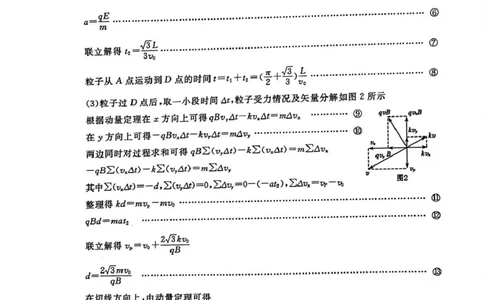 a=qE/m ⑥
联立解得 t₂=√3L/3v₀ ⑦
粒子从 A 点运动到 D 点的时间 t=t₁+t₂=(π/2+√3/3)L/v₀ ⑧
(3)粒子过 D 点后,取一小段时间 Δt,粒子受力情况及矢量分解如图 2 所示
根据动量定理在 x 方向上可得 qBvᵧΔt-kvₓΔt=mΔvₓ ⑨
在 y 方向上可得-qBvₓΔt-kvᵧΔt=mΔvᵧ ⑩
两边同时对过程求和可得 qBΣ(vᵧΔt)-kΣ(vₓΔt)=mΣΔvₓ
-qBΣ(vₓΔt)-kΣ(vᵧΔt)=mΣΔvᵧ
其中Σ(vₓΔt)=-d,Σ(vᵧΔt)=0,ΣΔvᵧ=0-(-at₂),ΣΔvₓ=vₚ-v₀
整理得 kd=mvₚ-mv₀ ⑪
qBd=mat₂ ⑫
联立解得 vₚ=v₀+2√3kv₀/qB
d=2√3mv₀/qB ⑬
在切线方向上,由动量定理可得
qvB
qvₓB
kvᵧ
kv
vₓ
qvᵧB
kvₓ
v
vᵧ
图2